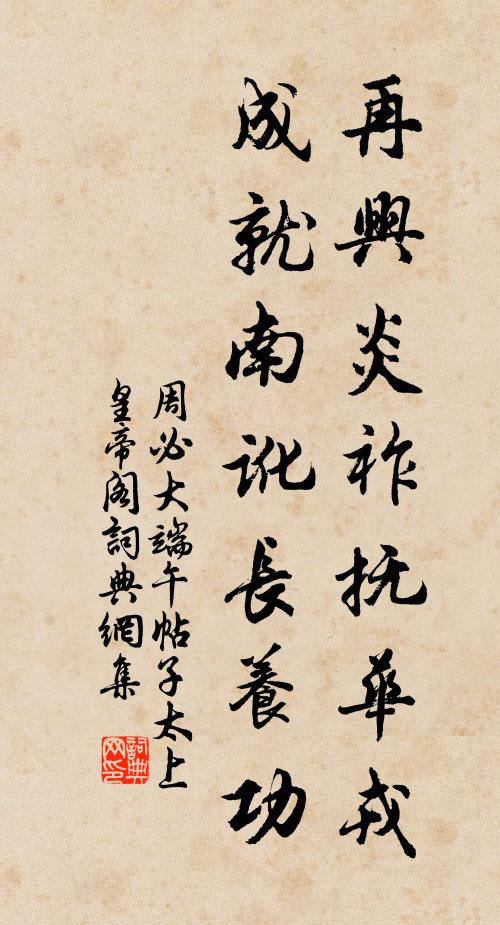 再興炎祚抚華戎
成就南訛長養功
周必大端午帖子太上
皇帝阁詞典網集
詞典网印